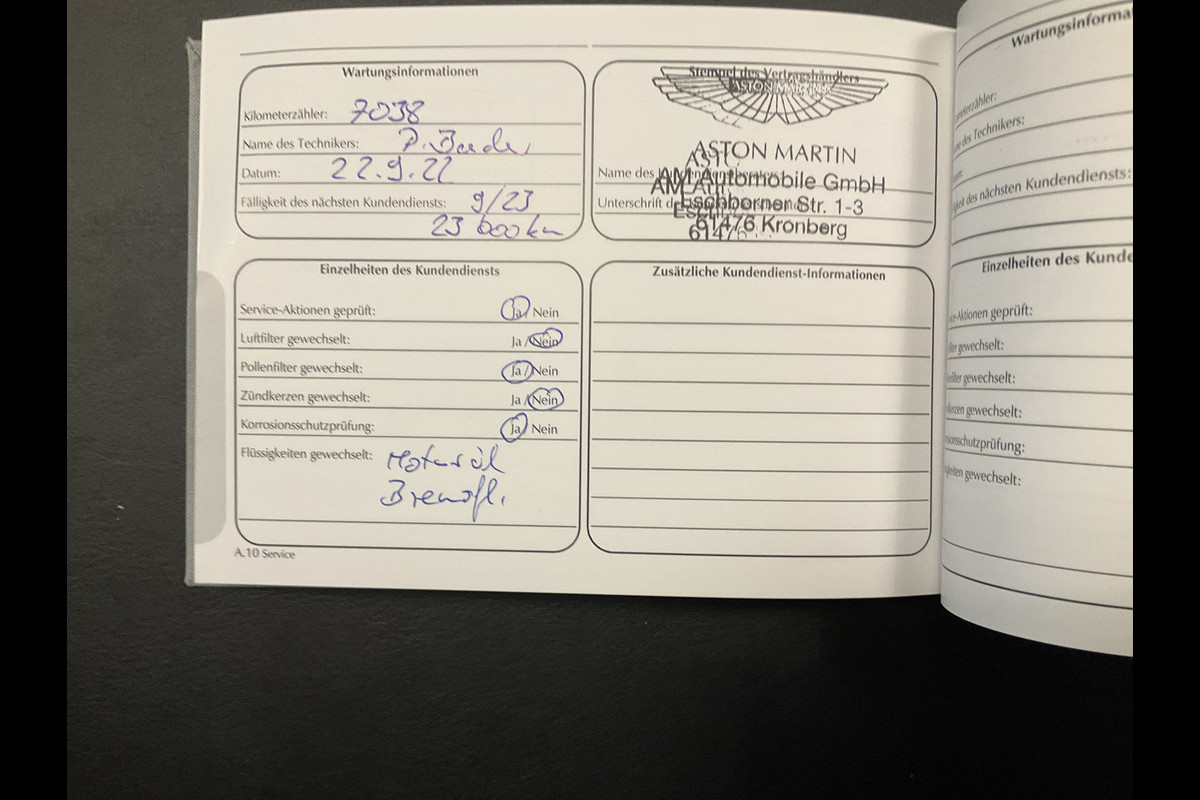 Wartungsinformationen
Kilometerzähler: 7038
Name des Technikers: P.
Datum: 22.9.22
Fälligkeit des nächsten Kundendiensts: 9/23
23 000 km
Stempel des Vertragshändlers
ASTON MARTIN
ASTON MARTIN
Name des
AM Automobile GmbH
Unterschrift
Eschborner Str. 1-3
61476 Kronberg
Einzelheiten des Kundendiensts
Service-Aktionen geprüft: Ja/Nein
Luftfilter gewechselt: Ja/Nein
Pollenfilter gewechselt: Ja/Nein
Zündkerzen gewechselt: Ja/Nein
Korrosionsschutzprüfung: Ja/Nein
Flüssigkeiten gewechselt: Motoröl
Bremsfl.
A.10 Service
Zusätzliche Kundendienst-Informationen
Wartungsinforma
meterzähler:
me des Technikers:
gkeit des nächsten Kundendiensts:
Einzelheiten des Kunde
ce-Aktionen geprüft:
filter gewechselt:
nfilter gewechselt:
kerzen gewechselt:
osionsschutzprüfung:
gkeiten gewechselt: